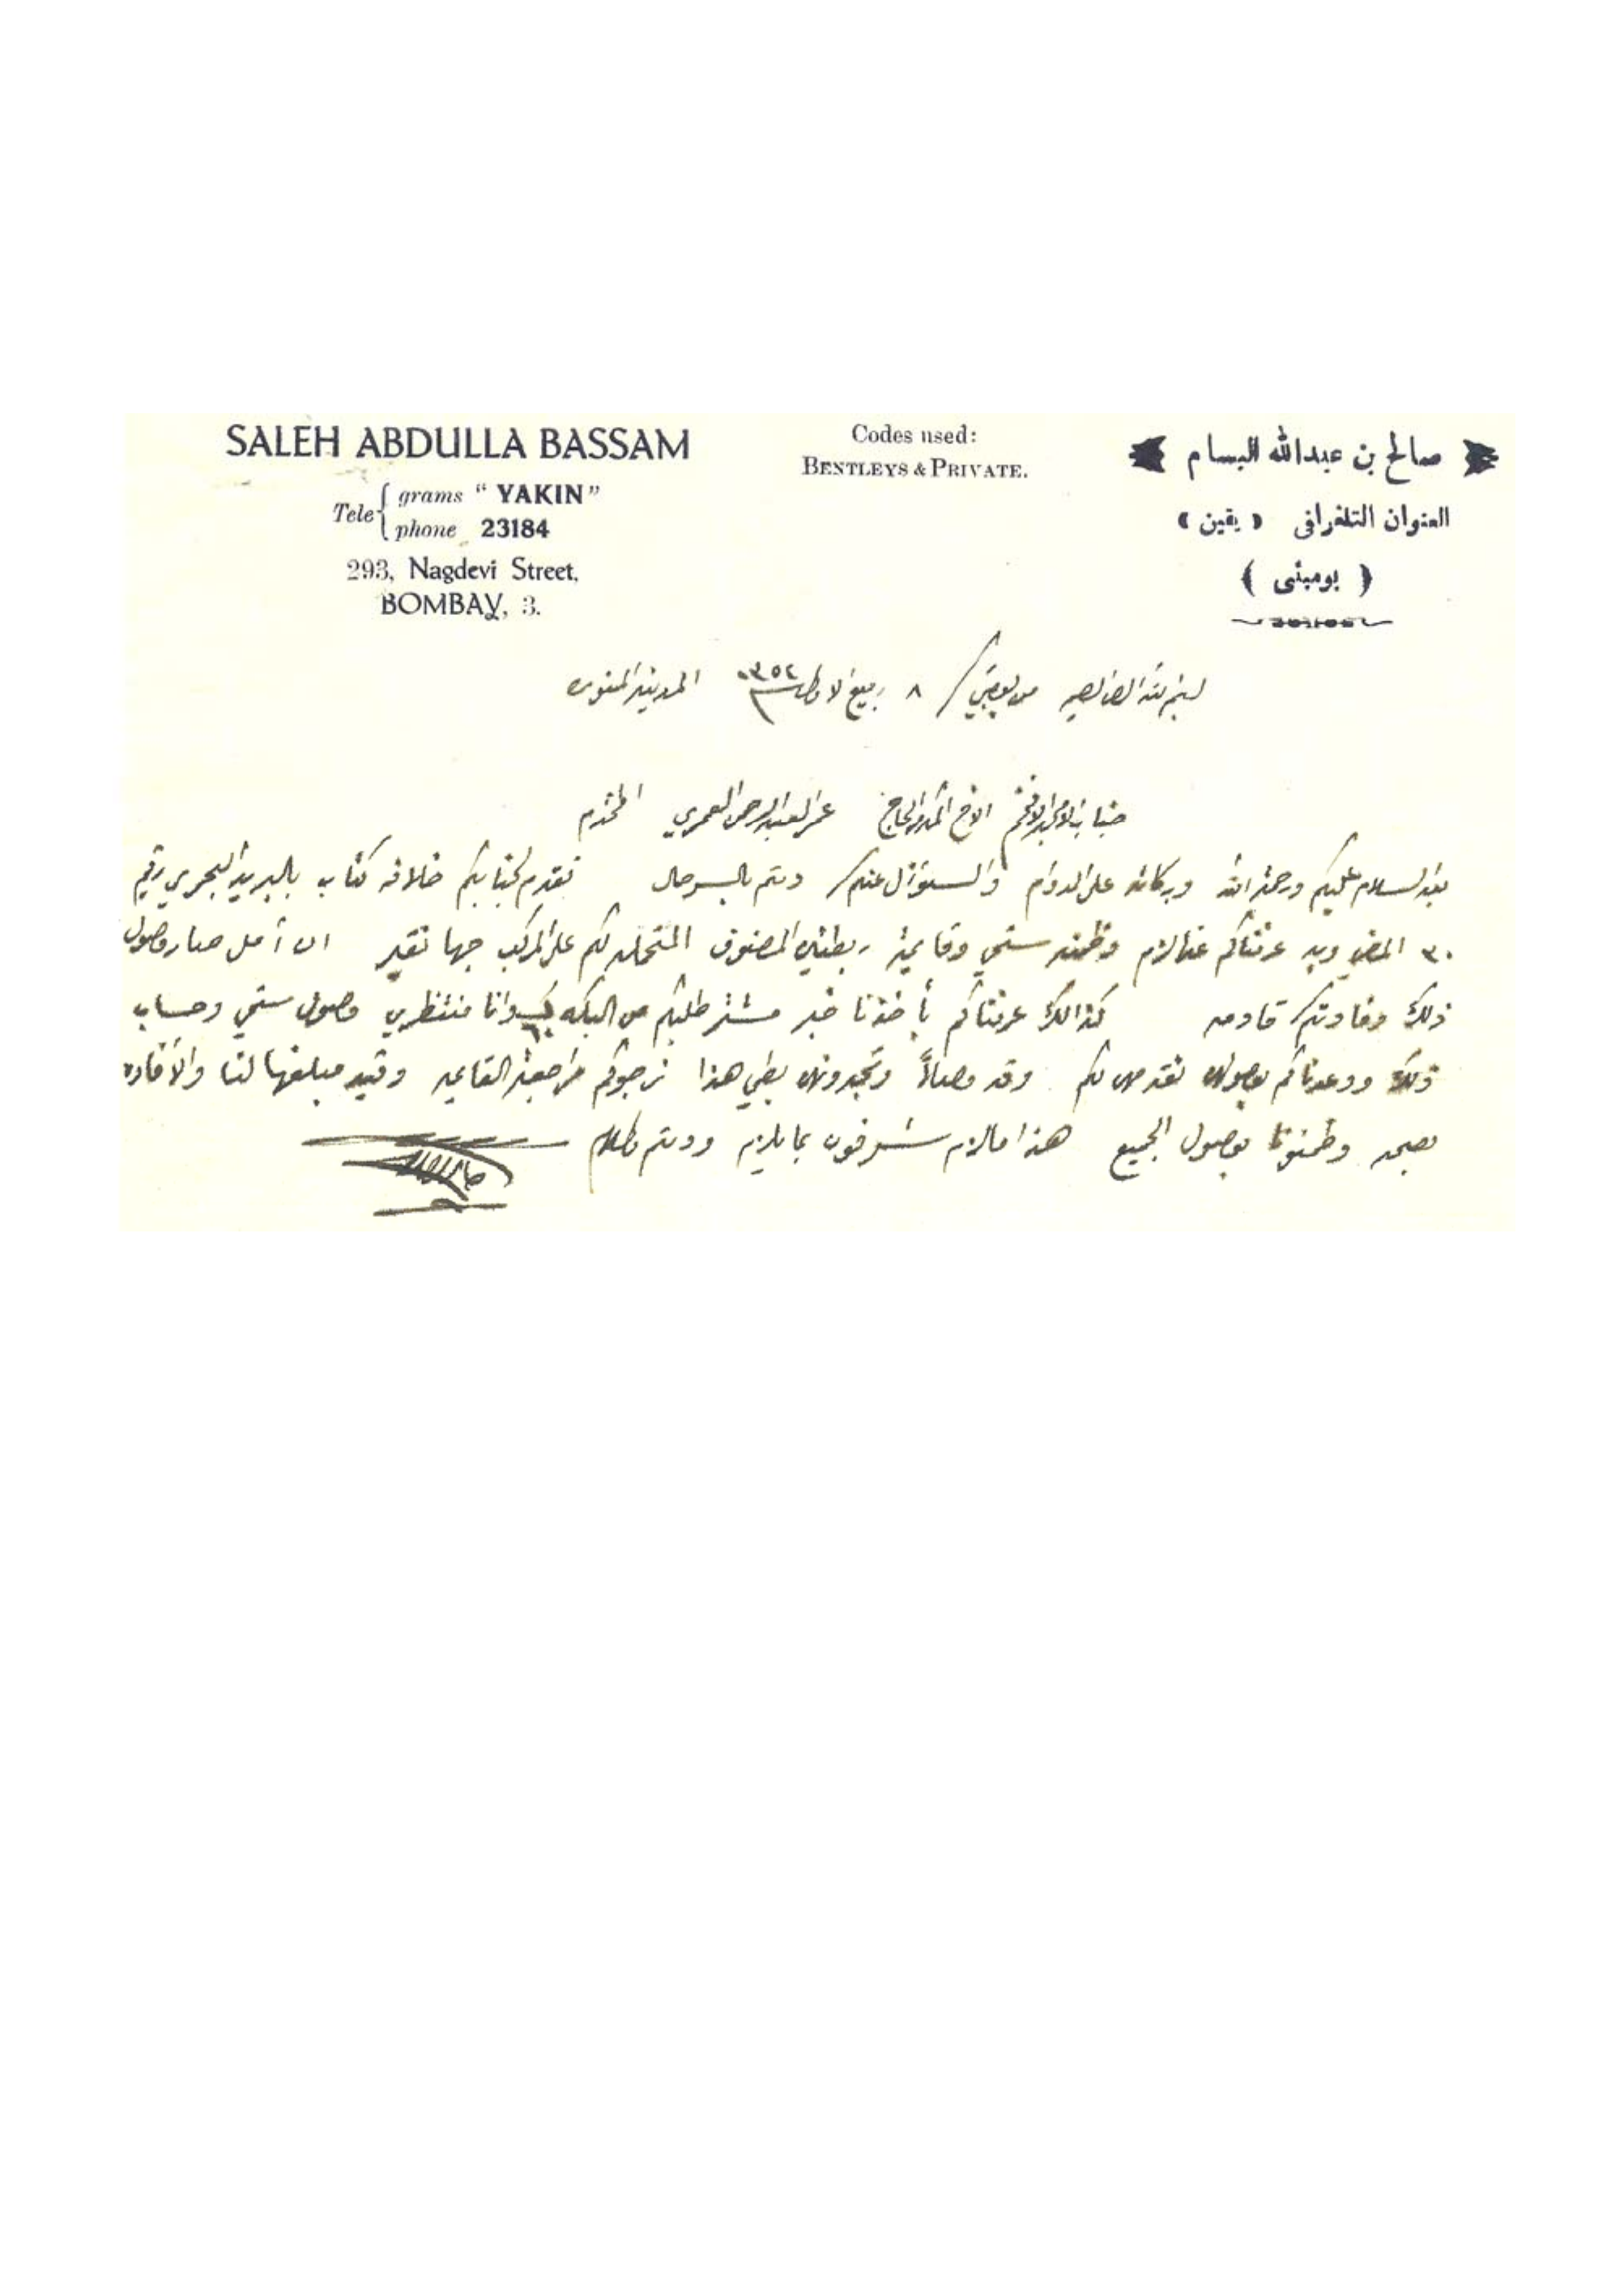 SALEH ABDULLA BASSAM
Tele grams "YAKIN"
phone 23184
293, Nagdevi Street,
BOMBAY, 3.
Codes used:
BENTLEYS & PRIVATE.
صالح بن عبدالله البسام
العنوان التلغرافى « يقين »
( بومبئى )
من بومبي / ٨ ربيع الاول ١٣٥٢ المدينه المنوره
جناب الامجد الافخم الاخ المكرم الحاج عمر العبدالرحمن العمري المحترم
بعد السلام عليكم ورحمة الله وبركاته على الدوام والسئوال عنكم دمتم بالسرحال تقدم لجنابكم خلافه كتاب بالبريد البحري رقيم
٣٠ المضي وبه عرفناكم عن اللازم وقائمة ربطتين المصنوف المتحمله لكم على المركب جهانقير ان أمل صار وصول
ذلك وفادتكم قادمه كذالك عرفناكم بأخذنا خبر مشتر طلبكم من وانا منتظرين وصول ستمي وحساب
ذلك ووعدناكم بوصولهن نقدمهن لكم وقد وصلاً وتجدونهن بطي هذا نرجوكم مراجعة القايمه وقيد مبلغها لنا والافاده
بصحه وطمنونا بوصول الجميع هذا مالزم شرفون بمايلزم ودمتم